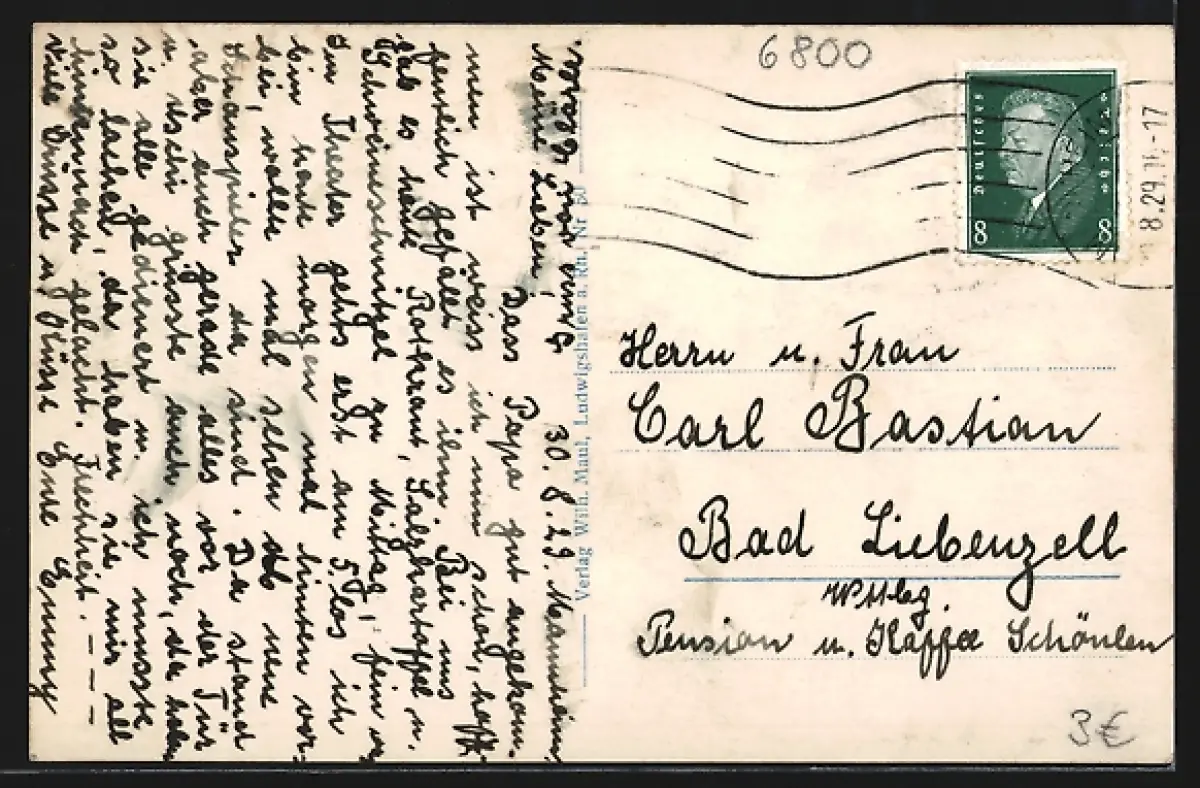 6800
Deutsches Reich
8 8
8.29.11-17
30.8.29. Mannheim
Meine Lieben!
Dass Papa gut angekom-
men ist weiss ich nun schon, hoff-
fentlich gefällt es ihm. Bei uns
gab es heute Rotkraut, Salzkartoffel u.
Schweineschnitzel zu Mittag, fein
Im Theater gehts erst am 5. los ich
bin heute morgen mal hinten vor-
bei, wollte mal sehen ob neue
Schauspieler da sind. Da stand
aber auch gerade alles vor der Tür
u. grüsste auch noch, da haben
sie alle gedienert u. ich musste
so lachen, da haben sie mir all
hinennach gelacht. Frechheit. - - -
Viele Grüsse u. Küsse Eure Emmy
Verlag Wilh. Maul, Ludwigshafen a. Rh. Nr. 50
Herrn u. Frau
Carl Bastian
Bad Liebenzell
Wttbg.
Pension u. Kaffee Schönlen
3€